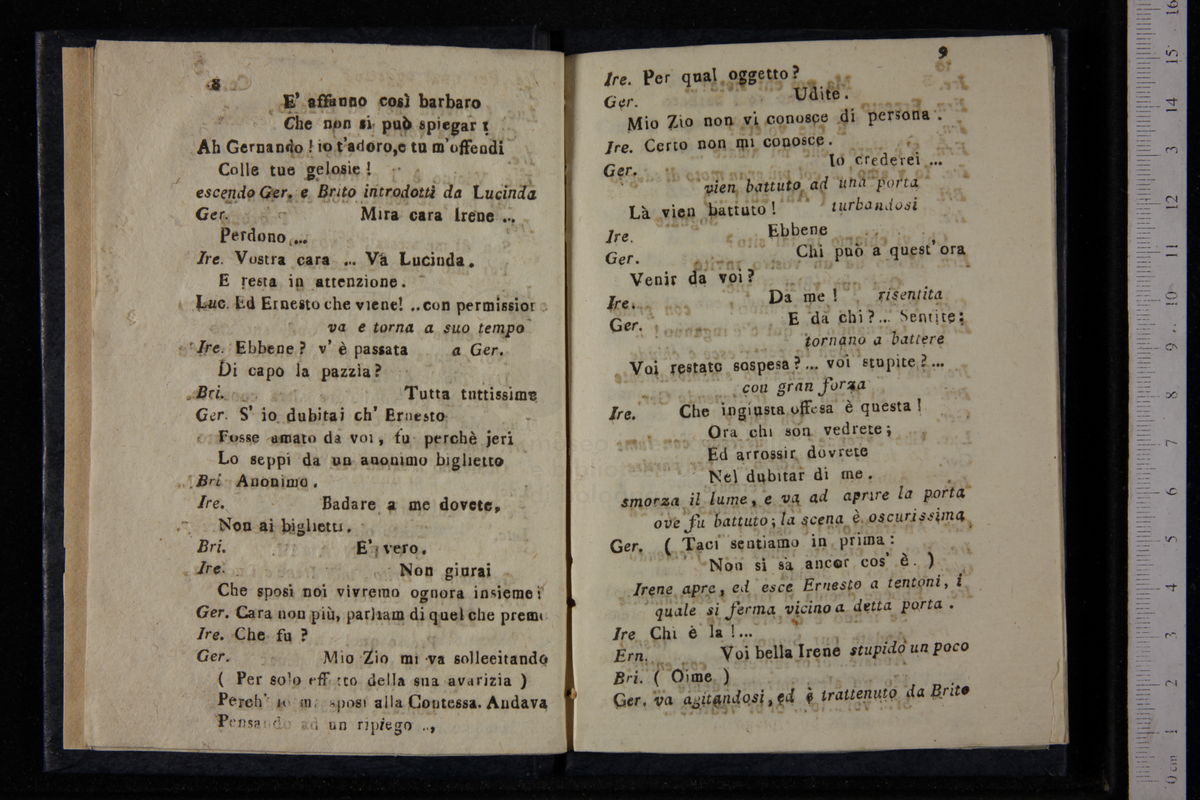 8
E' affanno così barbaro
Che non si può spiegar !
Ah Gernando ! io t'adoro, e tu m'offendi
Colle tue gelosie !
escendo Ger. e Brito introdotti da Lucinda
Ger. Mira cara Irene ...
Perdono ....
Ire. Vostra cara ... Va Lucinda.
E resta in attenzione.
Luc. Ed Ernesto che viene! .. con permission
va e torna a suo tempo
Ire. Ebbene? v' è passata a Ger.
Di capo la pazzìa?
Bri. Tutta tuttissima
Ger. S' io dubitai ch' Ernesto
Fosse amato da voi, fu perchè jeri
Lo seppi da un anonimo biglietto
Bri Anonimo.
Ire. Badare a me dovete,
Non ai biglietti.
Bri. E' vero.
Ire. Non giurai
Che sposi noi vivremo ognora insieme!
Ger. Cara non più, parliam di quel che preme
Ire. Che fu ?
Ger. Mio Zio mi va solleeitando
( Per solo effetto della sua avarizia )
Perch' io mi sposi alla Contessa. Andava
Pensando ad un ripiego ..,
9
Ire. Per qual oggetto?
Ger. Udite.
Mio Zio non vi conosce di persona.
Ire. Certo non mi conosce.
Ger. Io crederei ...
vien battuto ad una porta
Là vien battuto! turbandosi
Ire. Ebbene
Ger. Chi può a quest' ora
Venir da voi?
Ire. Da me ! risentita
Ger. E da chi?... Sentite;
tornano a battere
Voi restate sospesa?... voi stupite?...
con gran forza
Ire. Che ingiusta offesa è questa!
Ora chi son vedrete;
Ed arrossir dovrete
Nel dubitar di me.
smorza il lume, e va ad aprire la porta
ove fu battuto; la scena è oscurissima
Ger. ( Taci sentiamo in prima:
Non si sà ancor cos' è. )
Irene apre, ed esce Ernesto a tentoni, i
quale si ferma vicino a detta porta.
Ire Chi è la!...
Ern. Voi bella Irene stupido un poco
Bri. ( Oime )
Ger. va agitandosi, ed è trattenuto da Brito